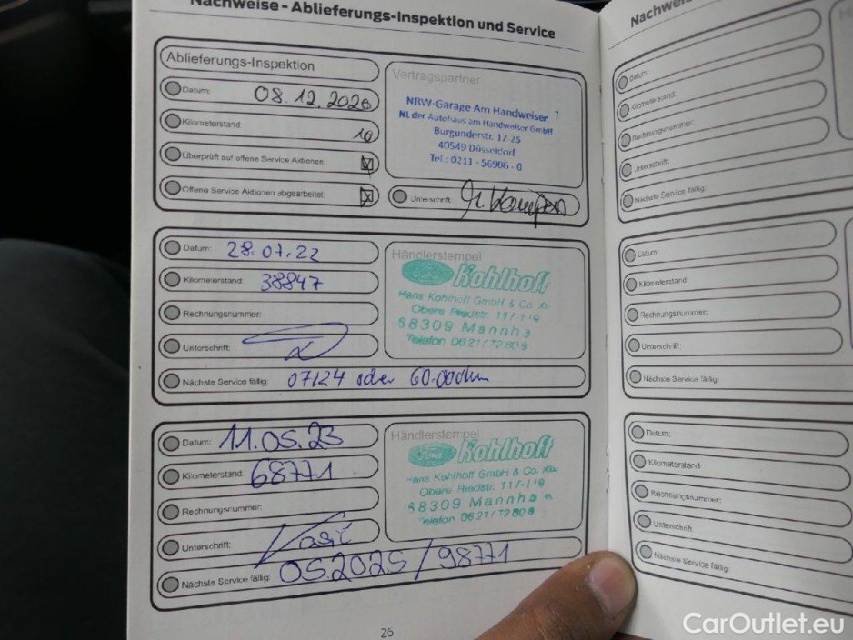 Nachweise - Ablieferungs-Inspektion und Service
Ablieferungs-Inspektion
Datum: 08.12.2020
Kilometerstand: 10
Überprüft auf offene Service Aktionen: ☒
Offene Service Aktionen abgearbeitet: ☒
Vertragspartner
NRW-Garage Am Handweiser
NL der Autohaus am Handweiser GmbH
Burgunderstr. 17-25
40549 Düsseldorf
Tel.: 0211 - 56906 - 0
Unterschrift:
Datum: 28.07.22
Kilometerstand: 38847
Rechnungsnummer:
Unterschrift:
Händlerstempel
Ford Kohlhoff
Hans Kohlhoff GmbH & Co.
Obere Riedstr. 117-119
68309 Mannh
Telefon 0621/72809
Nächste Service fällig: 07/24 oder 60.000km
Datum: 11.05.23
Kilometerstand: 68771
Rechnungsnummer:
Unterschrift:
Händlerstempel
Ford Kohlhoff
Hans Kohlhoff GmbH & Co.
Obere Riedstr. 117-119
68309 Mannh
Telefon 0621/72809
Nächste Service fällig: 05.2025/98771
26
Nachwei
Datum:
Kilometerstand:
Rechnungsnummer:
Unterschrift:
Nächste Service fällig:
Datum:
Kilometerstand:
Rechnungsnummer:
Unterschrift:
Nächste Service fällig:
Datum:
Kilometerstand:
Rechnungsnummer:
Unterschrift:
Nächste Service fällig:
CarOutlet.eu